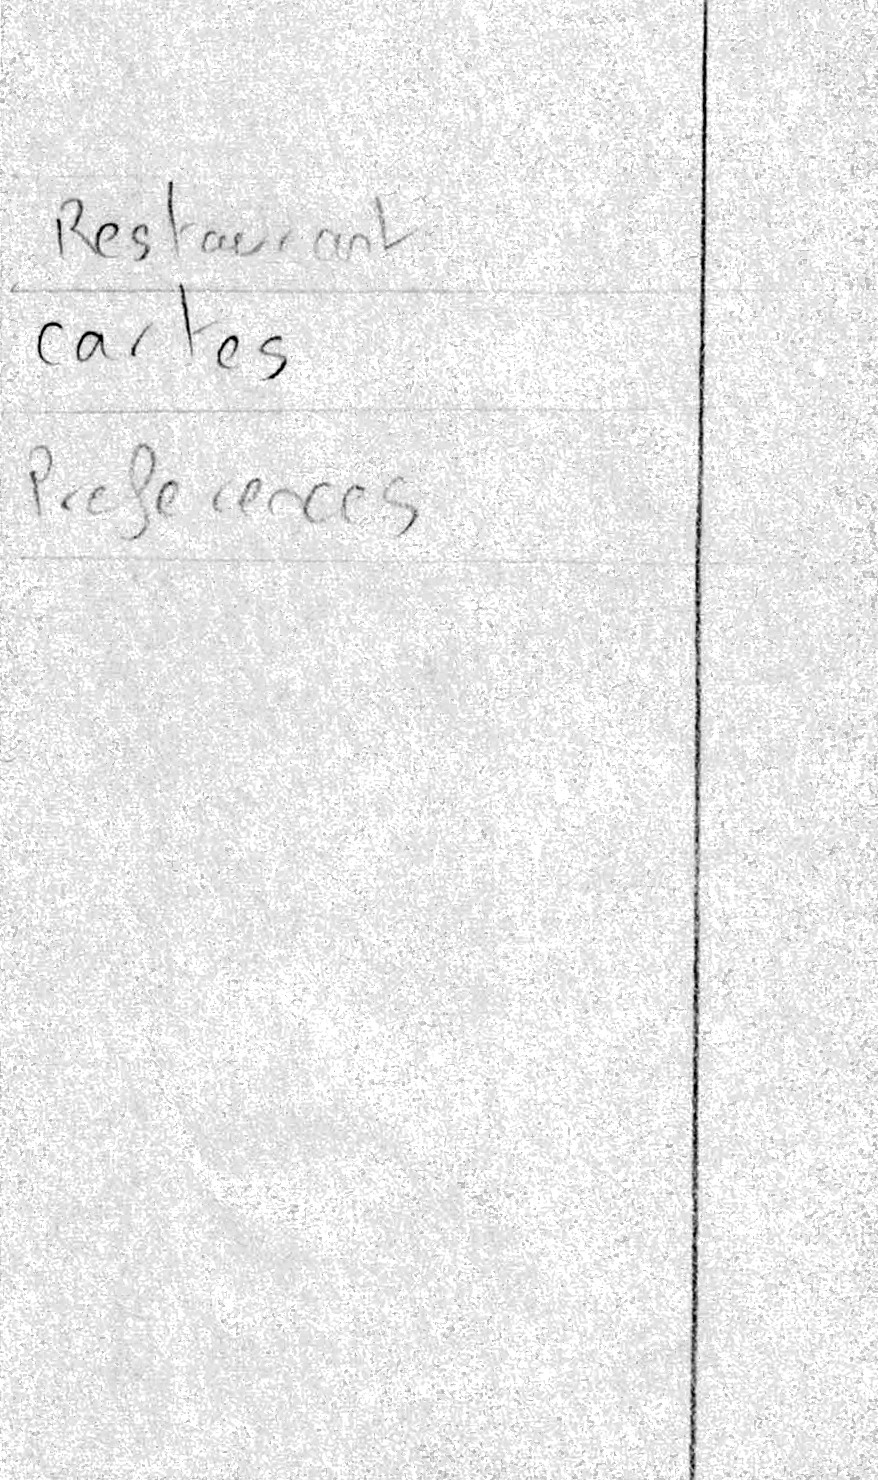 Restaurant
cartes
Preferences